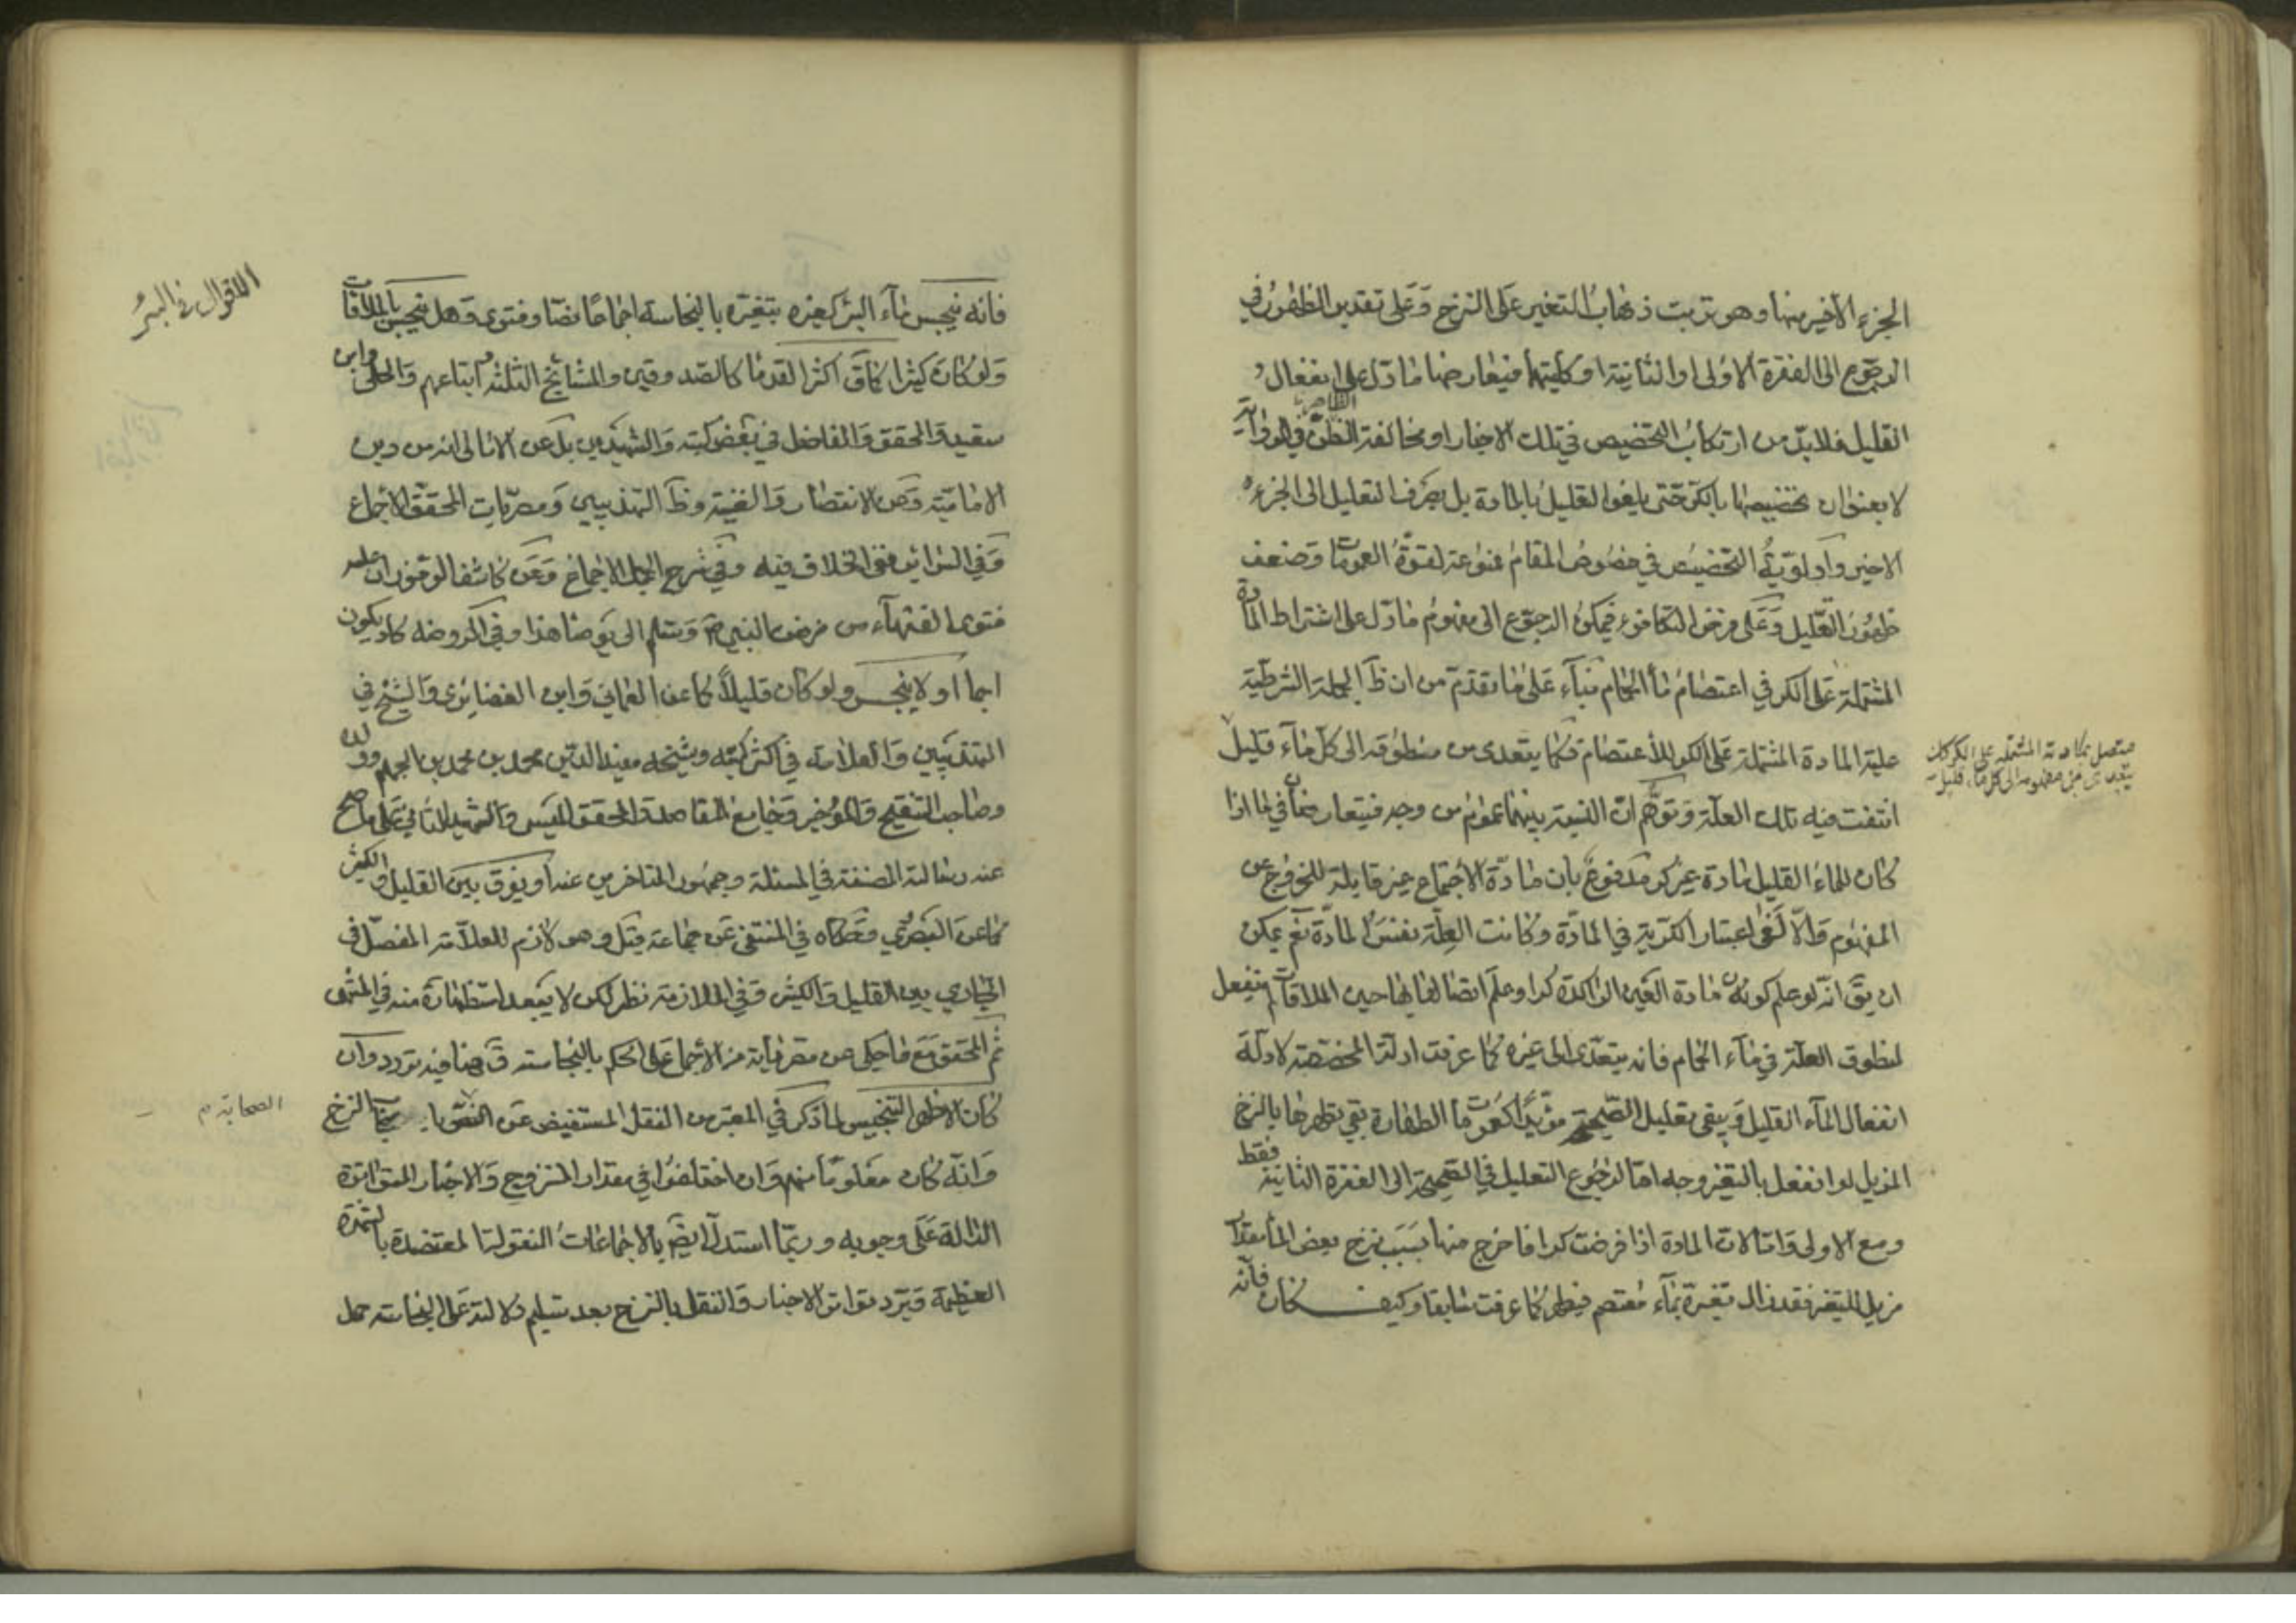 الجزء الاخير منها وهو ترتب ذهاب التغير على النزح وعلى تقدير الظهور في
الرجوع الى الفقرة الاولى او الثانية او كليتهما فيعارضها ما دل على انفعال
القليل فلا بد من ارتكاب التخصيص في تلك الاخبار او مخالفة الظاهر في الرواية
لا بعنوان تخصيصها بالكر حتى يلغوا التعليل بالمادة بل بصرف التعليل الى الجزء
الاخير واولوية التخصيص في خصوص المقام ممنوعة لقوة العمومات وضعف
ظهور التعليل وعلى فرض التكافوء فيمكن الرجوع الى مفهوم ما دل على اشتراط المادة
المشتملة على الكر في اعتصام ماء الحمام بناء على ما تقدم من ان ظ الجملة الشرطية
علية المادة المشتملة على الكر للاعتصام فكما يتعدى من منطوقه الى كل ماء قليل
متصل بمادته المشتملة على الكر كذلك
يتعدى من مفهومه الى كل ماء قليل
انتفت فيه تلك العلة وتوهم ان النسبة بينهما عموم من وجه فيتعارضان في ما اذا
كان للماء القليل مادة غير كر مدفوع بان مادة الاجتماع غير قابلة للخروج عن
المفهوم والا لغى اعتبار الكرية في المادة وكانت العلة نفس المادة نعم يمكن
ان يق انه لو علم كون مادة العين الراكدة كرا وعلم اتصالها بها حين الملاقات لم ينفعل
لمنطوق العلة في ماء الحمام فانه يتعدى الى غيره كما عرفت ادلتها المخصصة لادلة
انفعال الماء القليل ويبقى تعليل الصحيحة مؤيدا كعمومات الطهارة بقي تطهرها بالنزح
المزيل لو انفعل بالتغير وجهه اما لرجوع التعليل في الصحيحة الى الفقرة الثانية فقط
ومع الاولى واما لان المادة اذا فرضت كرا فما خرج منها بسبب نزح بعض الماء بمقدار
مزيل للتغير فقد زال تغيره بماء معتصم فيطهر كما عرفت سابقا وكيف كان فانه
الاقوال في البئر
فانه ينجس ماء البئر كغيره بتغيره بالنجاسة اجماعا نصا وفتوى وهل ينجس بالملاقات
ولو كان كثيرا كما عن اكثر القدما كالصدوقين والمشايخ الثلثة واتباعهم والحلى وابن
سعيد والمحقق والفاضل في بعض كتبه والشهيدين بل عن الامالي انه من دين
الامامية وعن الانتصار والغنية وظ التهذيبين ومصريات المحقق الاجماع
وفي السرائر نفي الخلاف فيه وفي شرح الجمل الاجماع وعن كاشف الرموز ان عليه
فتوى الفقهاء من زمن النبي ص وسلم الى يومنا هذا وفي الروضة كاد يكون
اجماعا او لا ينجس ولو كان قليلا كما عن العماني وابن الغضايري والشيخ في
التهذيبين والعلامة في اكثر كتبه وشيخه مفيد الدين محمد بن محمد بن الجهم وولده
وصاحب التنقيح والموجز وجامع المقاصد والمحقق الميسي والشهيد الثاني على ما صح
عنه رسالته المصنفة في المسئلة وجمهور المتاخرين عنه او يفرق بين القليل والكثير
كما عن البصروي وحكاه في المنتهى عن جماعة قيل وهو لازم للعلامة المفصل في
الجاري بين القليل والكثير وفي الملازمة نظر لكن لا يبعد استظهاره منه في المنتهى
ثم المحقق مع ما حكي عن مصرياته من الاجماع على الحكم بالنجاسة ق هنا فيه تردد وان
كان الاظهر التنجيس لما ذكر في المعتبر من النقل المستفيض عن الصحابة النزح
الصحابة م
وانه كان معلوما منهم وان اختلفوا في مقدار المنزوح والاخبار المتواترة
الدالة على وجوبه وربما استدل ايض بالاجماعات المنقولة المعتضدة بالشهرة
العظيمة ويرد تواتر الاخبار والنقل بالنزح بعد تسليم دلالته على النجاسة حمل